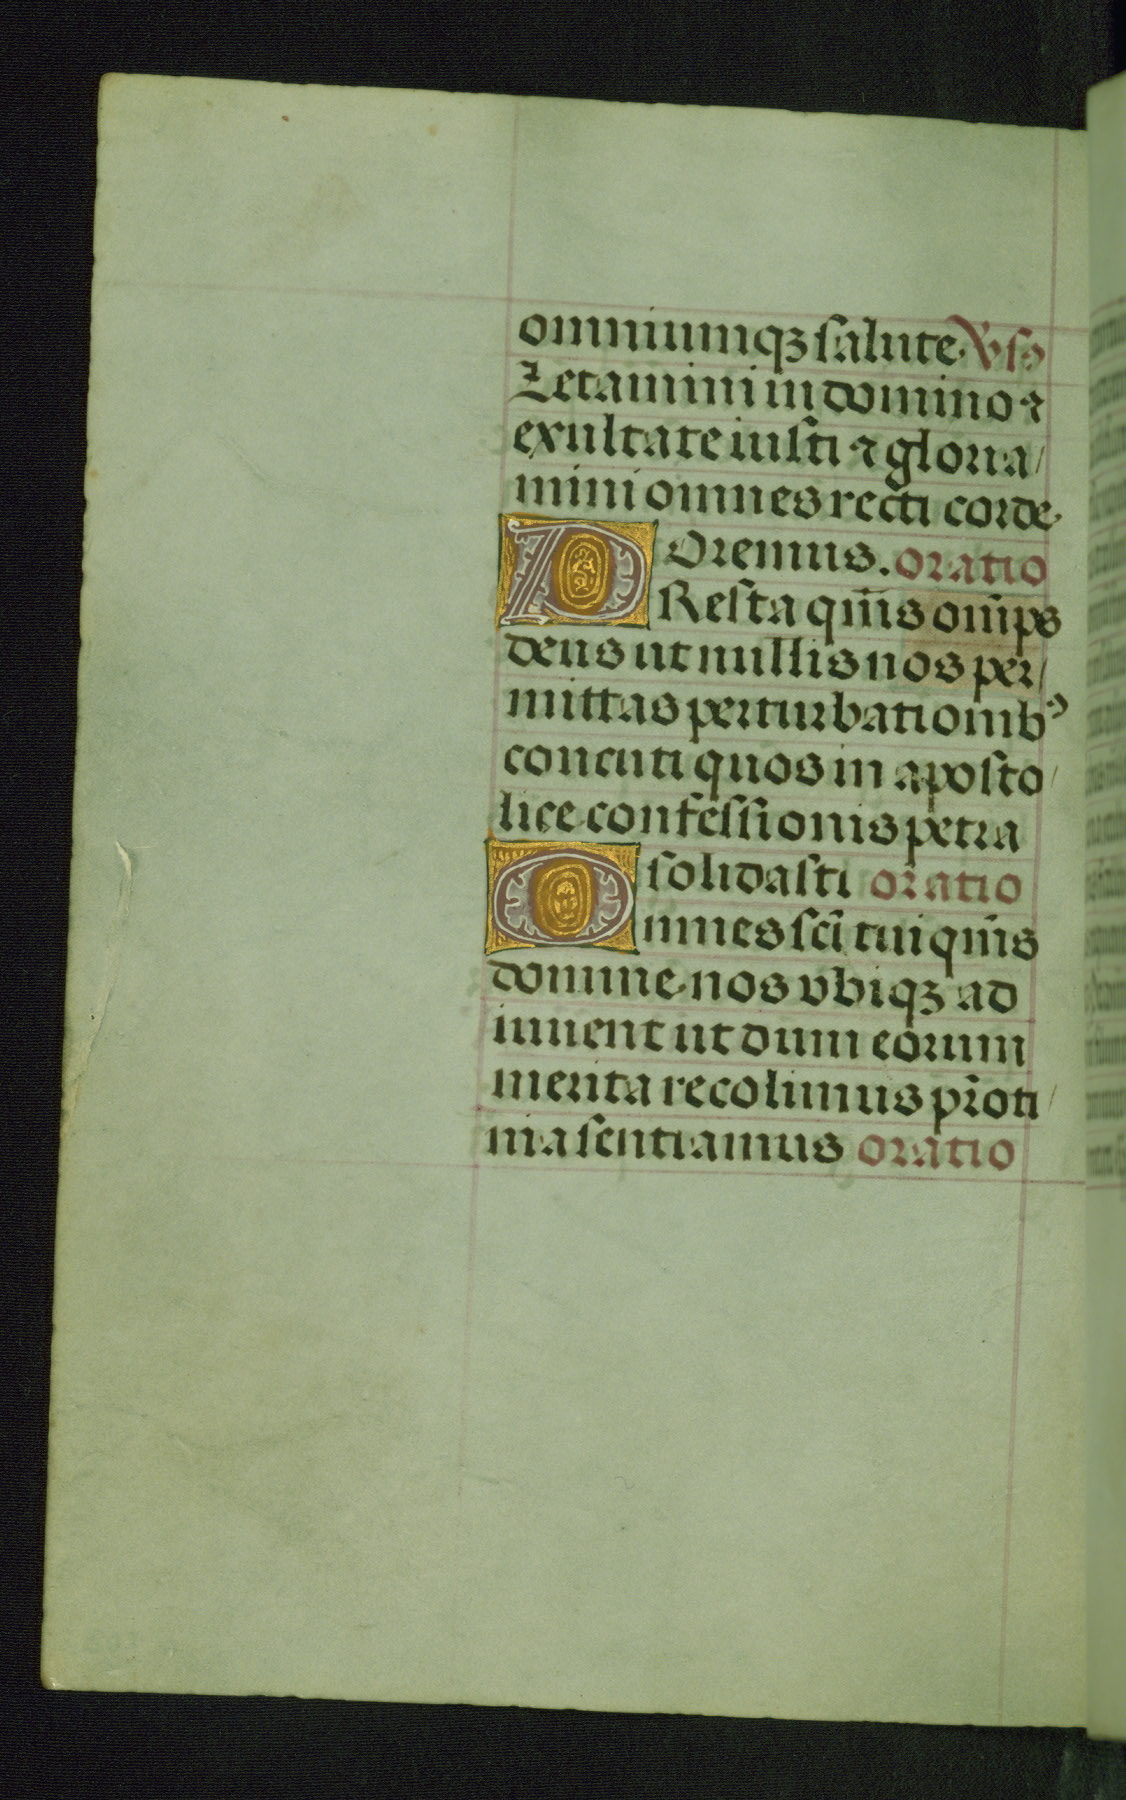 omniumqꝫ salute. Vsꝰ
Letamini in domino ⁊
exultate iusti ⁊ gloria/
mini omnes recti corde.
Oremus. oratio
PResta qm̄s om̄ps
deus ut nullis nos per/
mittas perturbationibꝰ
concuti quos in aposto/
lice confessionis petra
solidasti oratio
Omnes sc̄i tui qm̄s
domine nos vbiqꝫ ad
iuuent ut dum eorum
merita recolimus pr̄oti/
nia sentiamus oratio